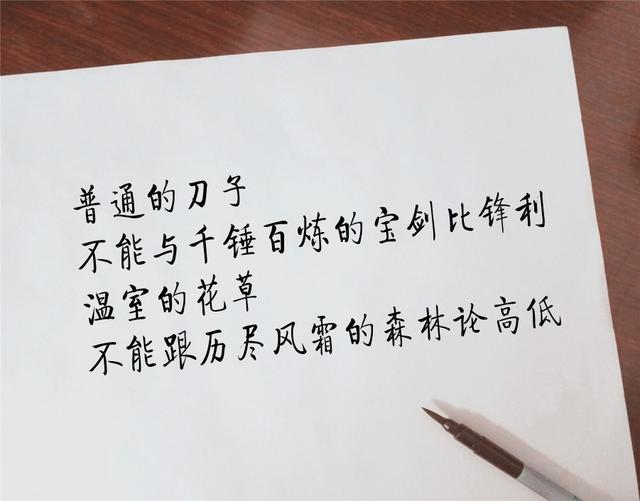 普通的刀子
不能与千锤百炼的宝剑比锋利
温室的花草
不能跟历尽风霜的森林论高低